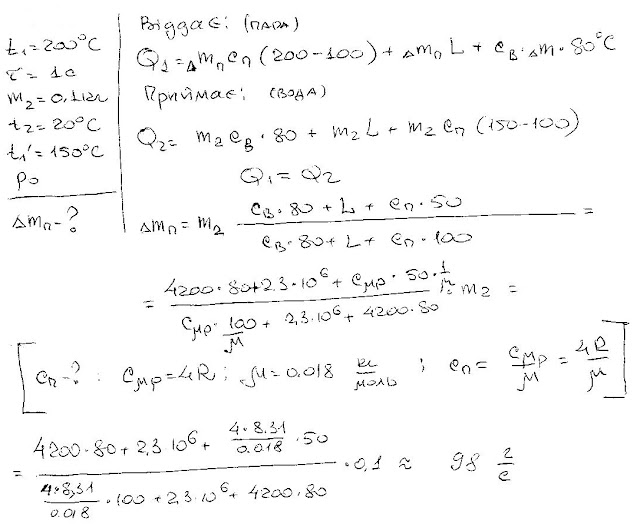 t₁=200°C
τ= 1c
m₂=0,1кг
t₂=20°C
t₁'=150°C
P₀
Δmп-?
Віддає: (ПАРА)
Q₁=Δmп cп (200-100)+Δmп L + cв·Δm·80°C
Приймає: (ВОДА)
Q₂= m₂cв·80 + m₂L + m₂cп (150-100)
Q₁=Q₂
Δmп = m₂ (cв·80 + L + cп·50)/(cв·80+L+cп·100) =
= (4200·80+2,3·10⁶ + cμp·50·1/μ)/(cμp·100/μ + 2,3·10⁶ + 4200·80) m₂ =
[cп-? : cμp=4R; μ=0.018 кг/моль ; cп= cμp/μ = 4R/μ]
= (4200·80+2,3 10⁶+ (4·8.31)/0.018 ·50)/((4·8,31)/0.018 ·100+2,3·10⁶+4200·80) ·0,1 ≈ 98 г/c